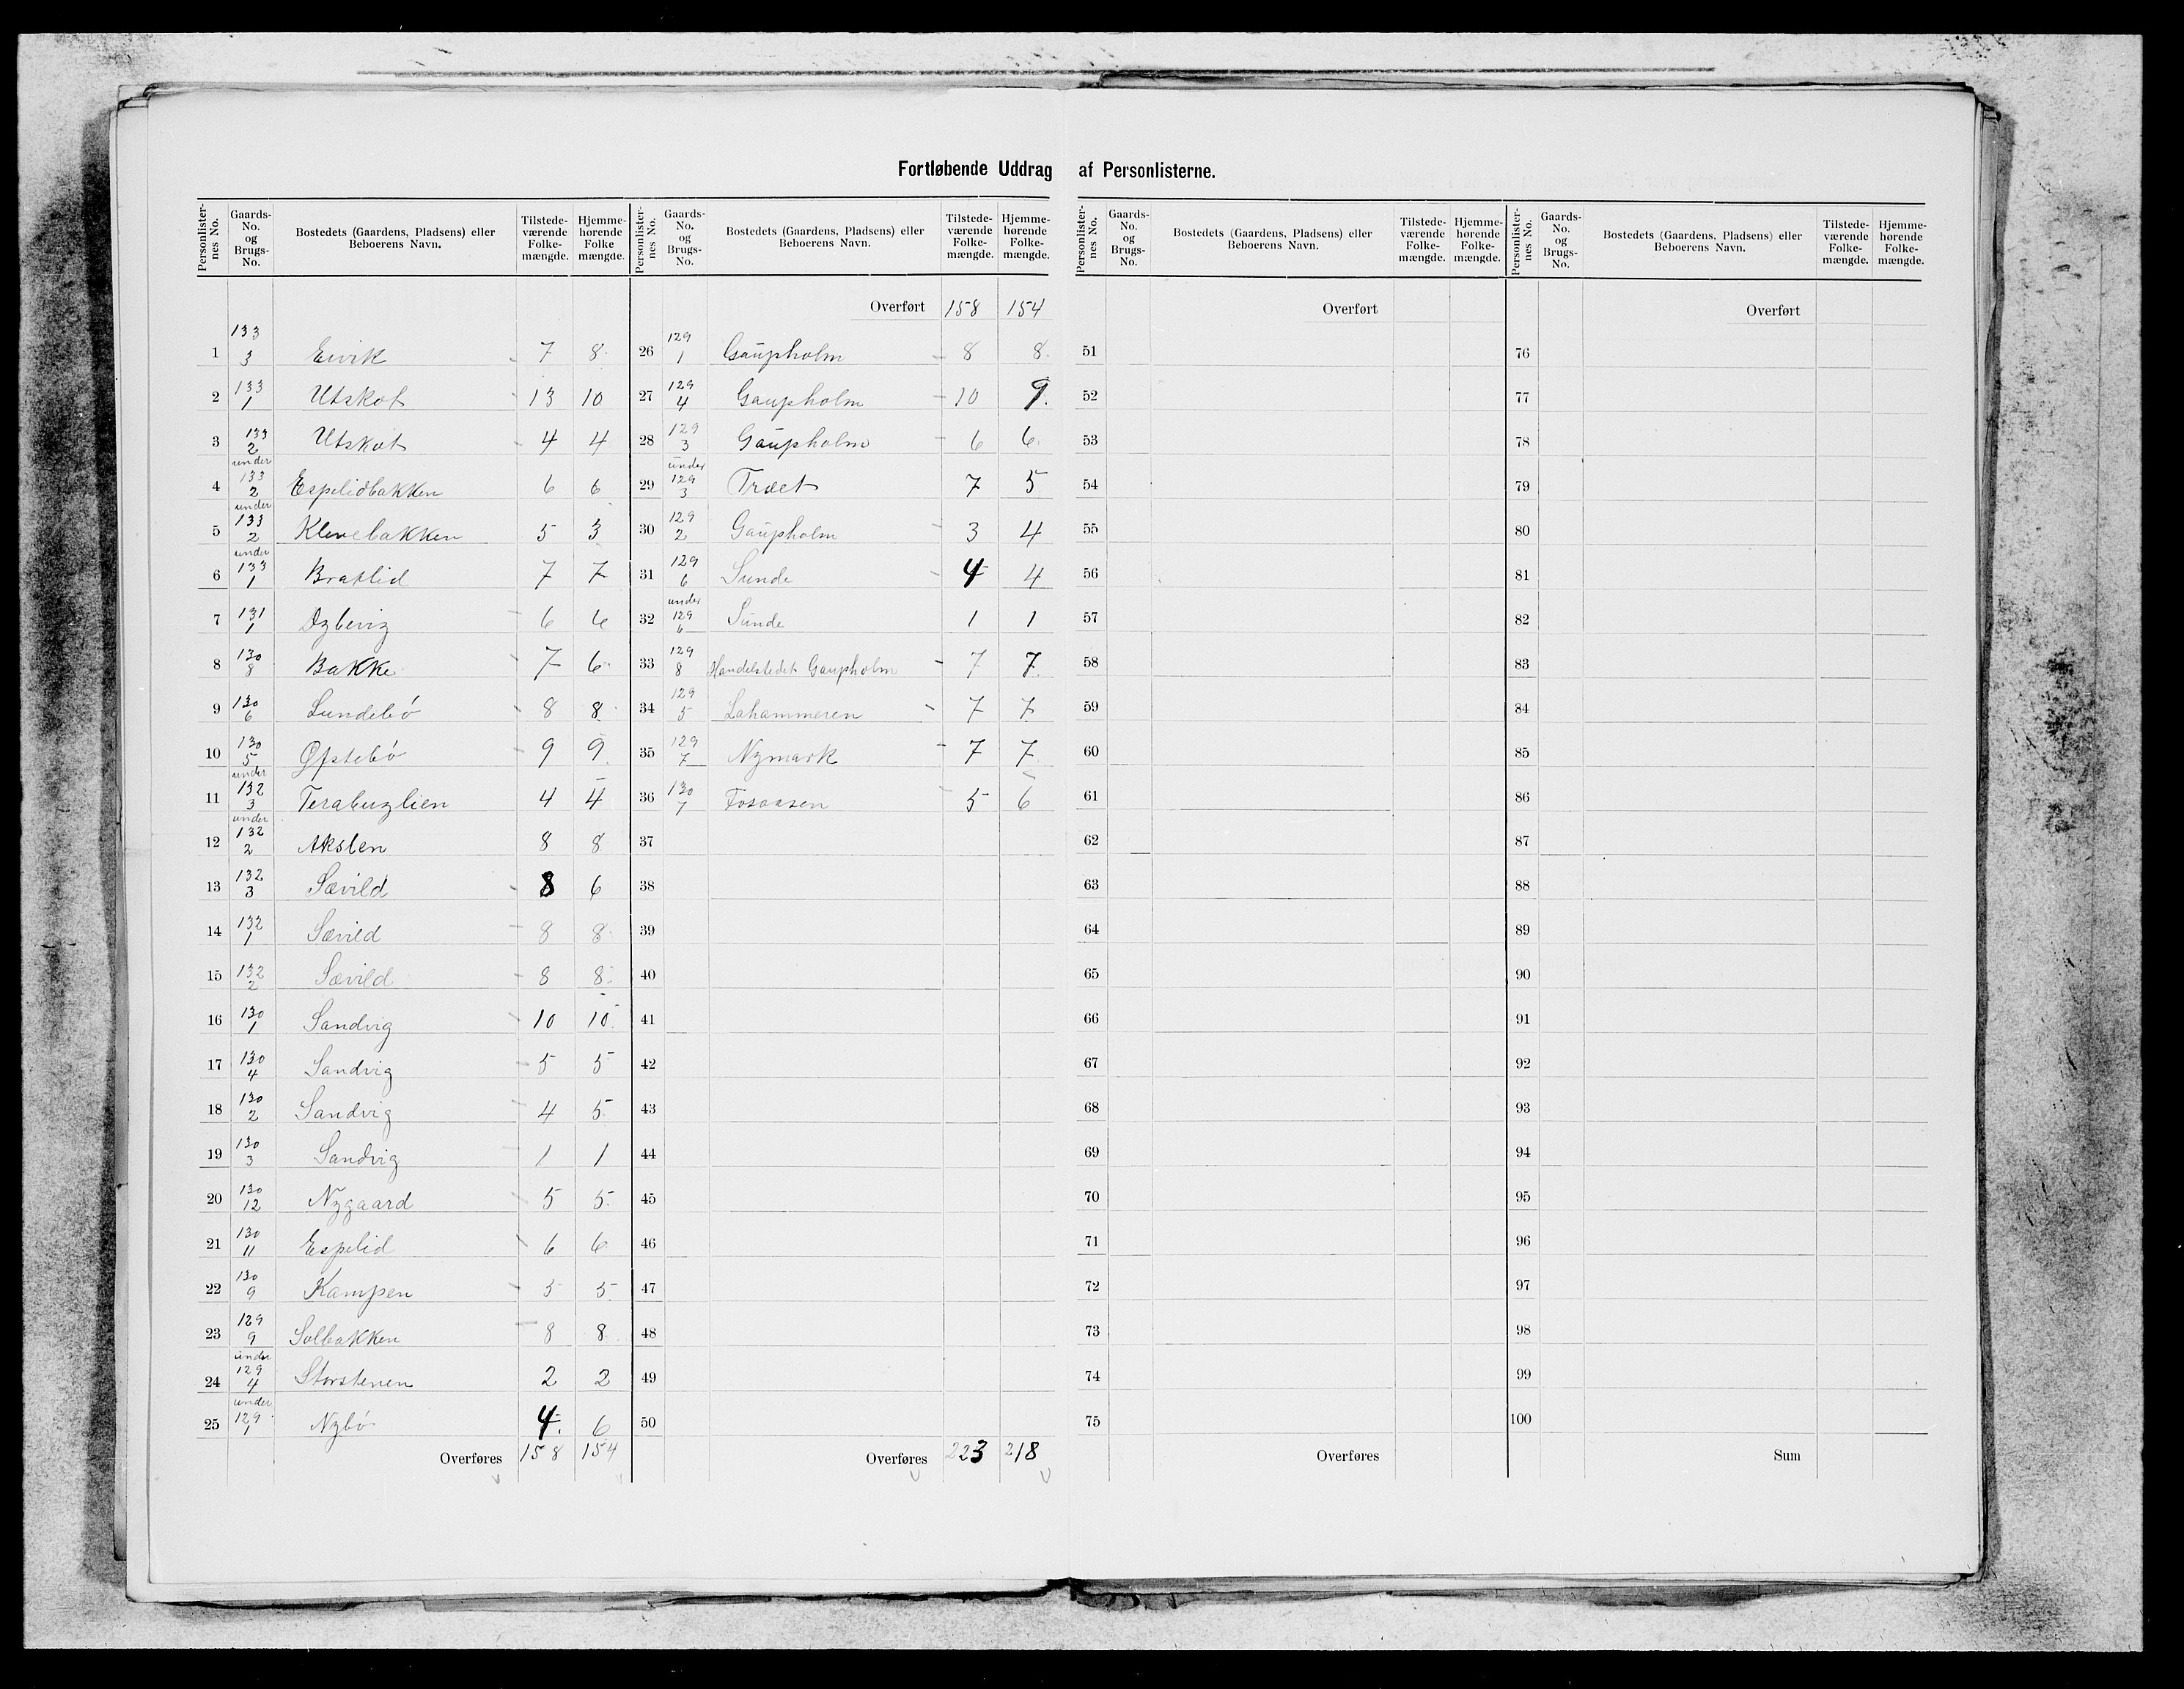 Fortløbende Uddrag af Personlisterne.
Personlisternes No. | Gaards-No. og Brugs-No. | Bostedets (Gaardens, Pladsens) eller Beboerens Navn. | Tilstedeværende Folkemængde. | Hjemmehørende Folkemængde.
1 | 133 3 | Eivik | 7 | 8
2 | 133 1 | Utskot | 13 | 10
3 | 133 2 | Utskot | 4 | 4
4 | under 133 2 | Espelidbakken | 6 | 6
5 | under 133 2 | Klevebakken | 5 | 3
6 | under 133 1 | Bratlid | 7 | 7
7 | 131 1 | | 6 | 6
8 | 130 8 | Bakke | 7 | 6
9 | 130 6 | Lundebö | 8 | 8
10 | 130 5 | Øfstebö | 9 | 9
11 | under 132 3 | | 4 | 4
12 | under 132 2 | Akslen | 8 | 8
13 | 132 3 | Sævild | 8 | 6
14 | 132 1 | Sævild | 8 | 8
15 | 132 2 | Sævild | 8 | 8
16 | 130 1 | Sandvig | 10 | 10
17 | 130 4 | Sandvig | 5 | 5
18 | 130 2 | Sandvig | 4 | 5
19 | 130 3 | Sandvig | 1 | 1
20 | 130 12 | Nygaard | 5 | 5
21 | 130 11 | Espelid | 6 | 6
22 | 130 9 | Kampen | 5 | 5
23 | 129 9 | Solbakken | 8 | 8
24 | under 129 4 | Storstenen | 2 | 2
25 | under 129 1 | Nybö | 4 | 6
Overføres 158 154
Personlisternes No. | Gaards-No. og Brugs-No. | Bostedets (Gaardens, Pladsens) eller Beboerens Navn. | Tilstedeværende Folkemængde. | Hjemmehørende Folkemængde.
Overført 158 154
26 | 129 1 | Gaupholm | 8 | 8
27 | 129 4 | Gaupholm | 10 | 9
28 | 129 3 | Gaupholm | 6 | 6
29 | under 129 3 | Træet | 7 | 5
30 | 129 2 | Gaupholm | 3 | 4
31 | 129 6 | Sunde | 4 | 4
32 | under 129 6 | Sunde | 1 | 1
33 | 129 8 | Handelstedet Gaupholm | 7 | 7
34 | 129 5 | Lahammeren | 7 | 7
35 | 129 7 | Nymark | 7 | 7
36 | 130 7 | Fosaasen | 5 | 6
37
38
39
40
41
42
43
44
45
46
47
48
49
50
Overføres 223 218
Personlisternes No. | Gaards-No. og Brugs-No. | Bostedets (Gaardens, Pladsens) eller Beboerens Navn. | Tilstedeværende Folkemængde. | Hjemmehørende Folkemængde.
Overført
51
52
53
54
55
56
57
58
59
60
61
62
63
64
65
66
67
68
69
70
71
72
73
74
75
Overføres
Personlisternes No. | Gaards-No. og Brugs-No. | Bostedets (Gaardens, Pladsens) eller Beboerens Navn. | Tilstedeværende Folkemængde. | Hjemmehørende Folkemængde.
Overført
76
77
78
79
80
81
82
83
84
85
86
87
88
89
90
91
92
93
94
95
96
97
98
99
100
Sum